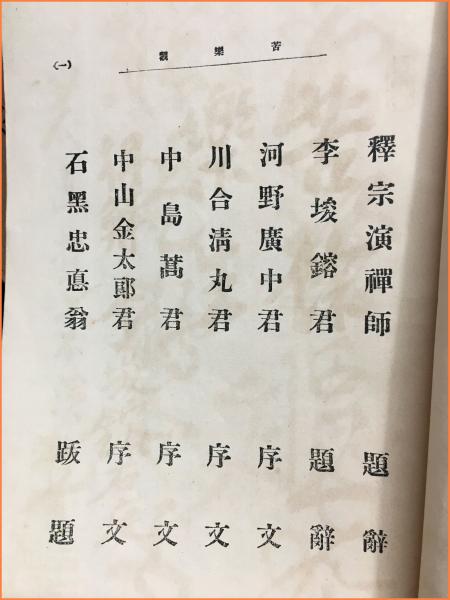 苦樂觀
(一)
釋宗演禪師 題辭
李埈鎔君 題辭
河野廣中君 序文
川合淸丸君 序文
中島蒿君 序文
中山金太郞君 序文
石黑忠悳翁 跋題